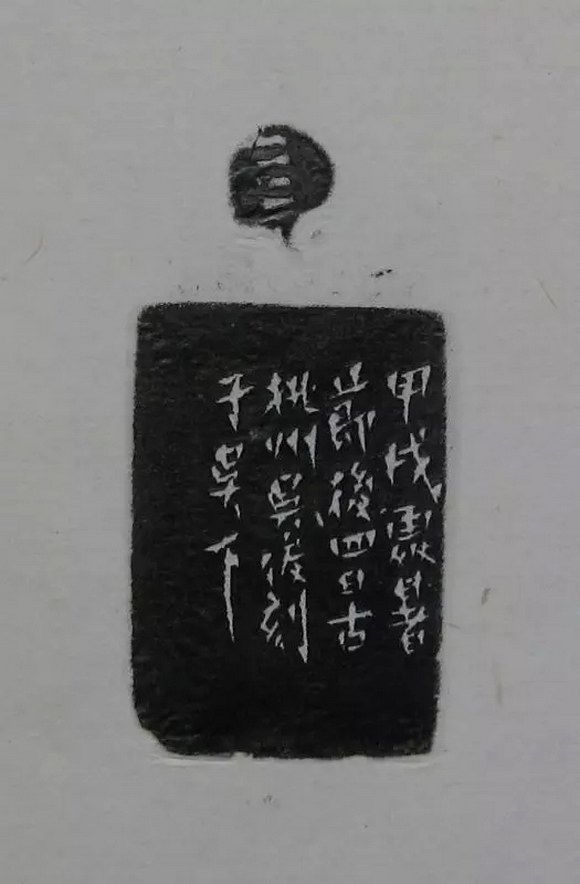 甲戌處暑
節後四日古
桃州吳俊刻
于吳下